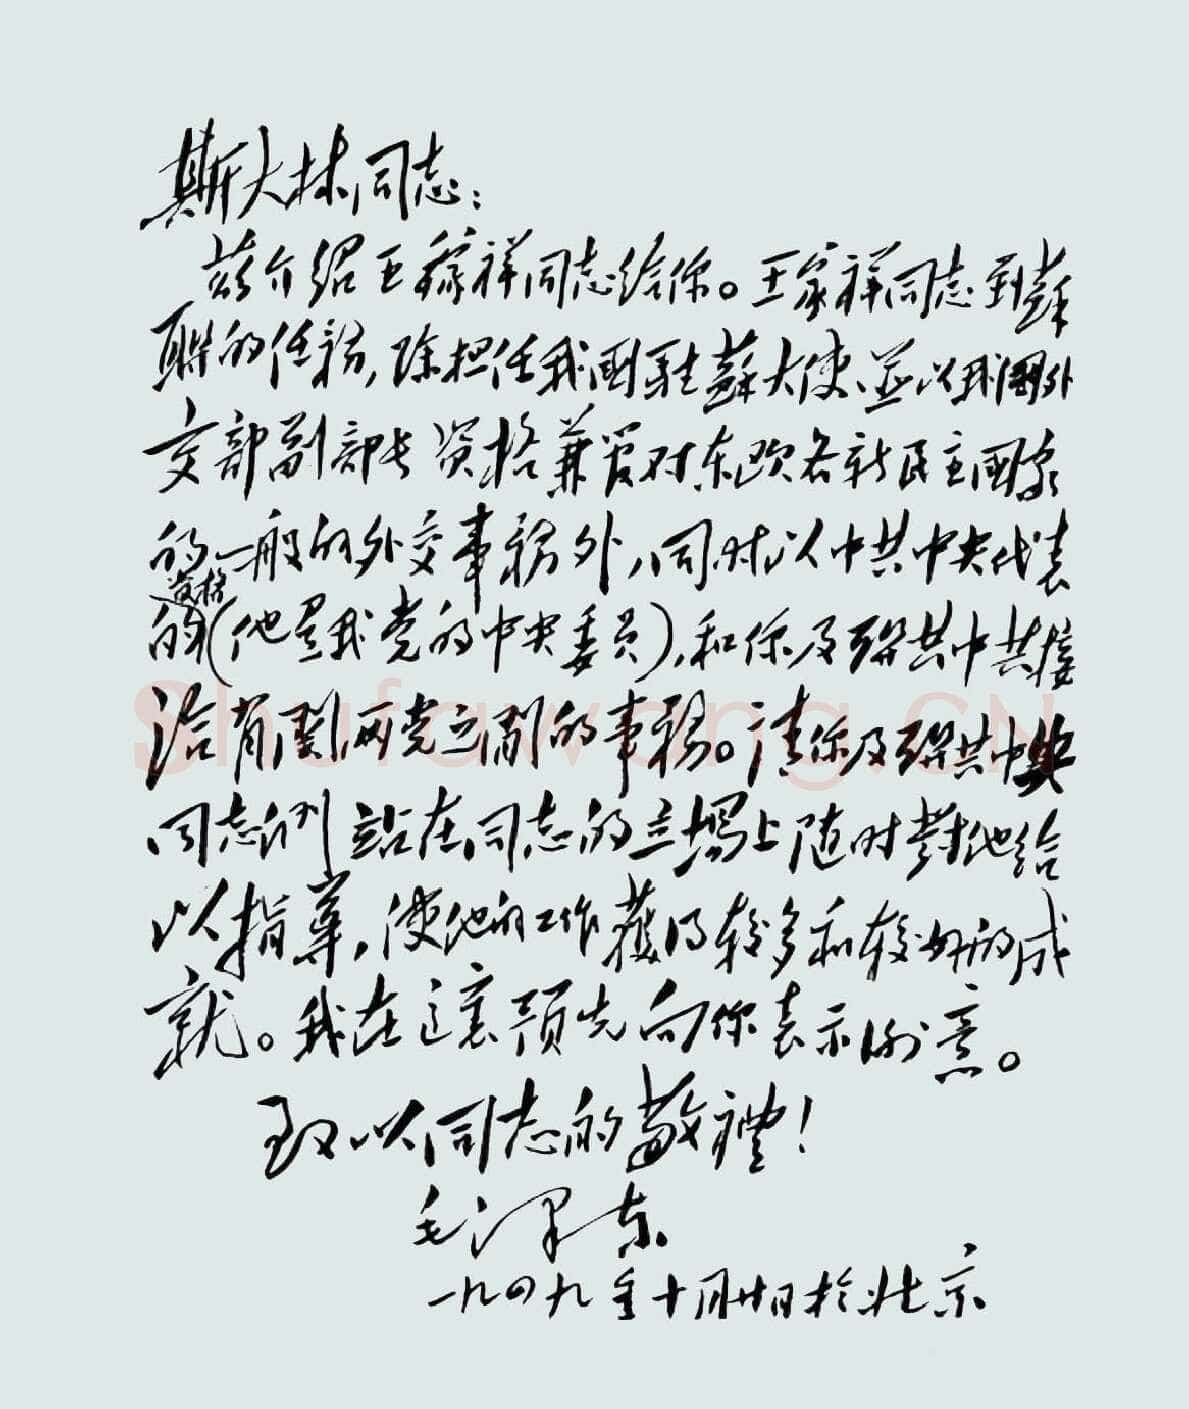 斯大林同志：
兹介绍王稼祥同志给你。王家祥同志到苏
联的任务，除担任我国驻苏大使、並以我国外
交部副部长资格兼管对东欧各新民主国家
的一般的外交事务外，同时以中共中央代表
资格
的（他是我党的中央委员），和你及联共中共接
洽有関两党之间的事务。请你及联共中央
同志们站在同志的立場上随时對他给
以指導，使他的工作獲得较多和较好的成
就。我在這裏预先向你表示谢意。
致以同志的敬禮！
毛泽东
一九四九年十月廿日於北京
Shufawang.CN